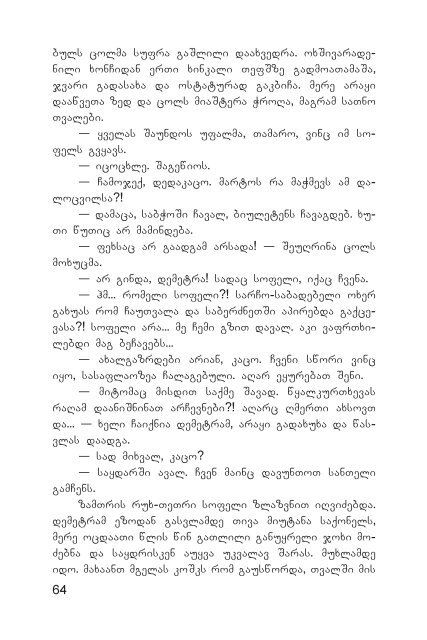 ბულს ცოლმა სუფრა გაშლილი დაახვედრა. ოხშივარადე-
ნილი ხონჩიდან ერთი ხინკალი თეფშზე გადმოათამაშა,
ჯვარი გადასახა და ოსტატურად გაკბიჩა. მერე არაყი
დააწვეთა ზედ და ცოლს მიაშტერა ჭროღა, მაგრამ სათნო
თვალები.
— ყველას შაუნდოს უფალმა, თამარო, ვინც იმ სო-
ფელს გვყავს.
— იცოცხლე. შაგეწიოს.
— ჩამოჯექ, დედაკაცო. მარტოს რა მაჭმევს ამ და-
ლოცვილსა?!
— დამაცა, საბჭოში ჩავალ, ბიულეტენს ჩავაგდებ. ხუ-
თი წუთიც არ მამინდება.
— ფეხსაც არ გაადგამ არსადა! — შეუღრინა ცოლს
მოხუცმა.
— არ გინდა, დემეტრა! სადაც სოფელი, იქაც ჩვენა.
— ჰმ... რომელი სოფელი?! სარჩო-საბადებელი ოხერ
გახუას რომ ჩაუთვალა და საბერძნეთში აპირებდა გაქცე-
ვასა?! სოფელი არა... მე ჩემი გზით დავალ. აკი ვაფრთხი-
ლებდი მაგ ბეჩავებს...
— ახალგაზრდები არიან, კაცო. ჩვენი სწორი ვინც
იყო, სასაფლაოზეა ჩალაგებული. აღარ ეყურებათ შენი.
— მიტომაც მისდით საქმე შავად. წყალკურთხევას
რაღამ დაანიშნინათ არჩევნები?! აღარც ღმერთი ახსოვთ
და... — ხელი ჩაიქნია დემეტრამ, არაყი გადახუხა და წას-
ვლას დაადგა.
— სად მიხვალ, კაცო?
— საყდარში ავალ. ჩვენ მაინც დავუნთოთ სანთელი
გამჩენს.
ზამთრის რუხ-თეთრი სოფელი ზლაზვნით იღვიძებდა.
დემეტრამ ეზოდან გასვლამდე თივა მიუტანა საქონელს,
მერე ოცდაათი წლის წინ გათლილი განუყრელი ჯოხი მო-
ძებნა და საყდრისკენ აუყვა უკვალავ შარას. მუხლამდე
იდო. მახაანთ მგელას კოშკს რომ გაუსწორდა, თვალში მის
64